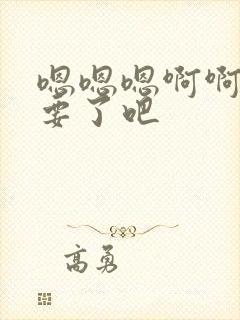 嗯嗯嗯啊啊
要了吧
高勇